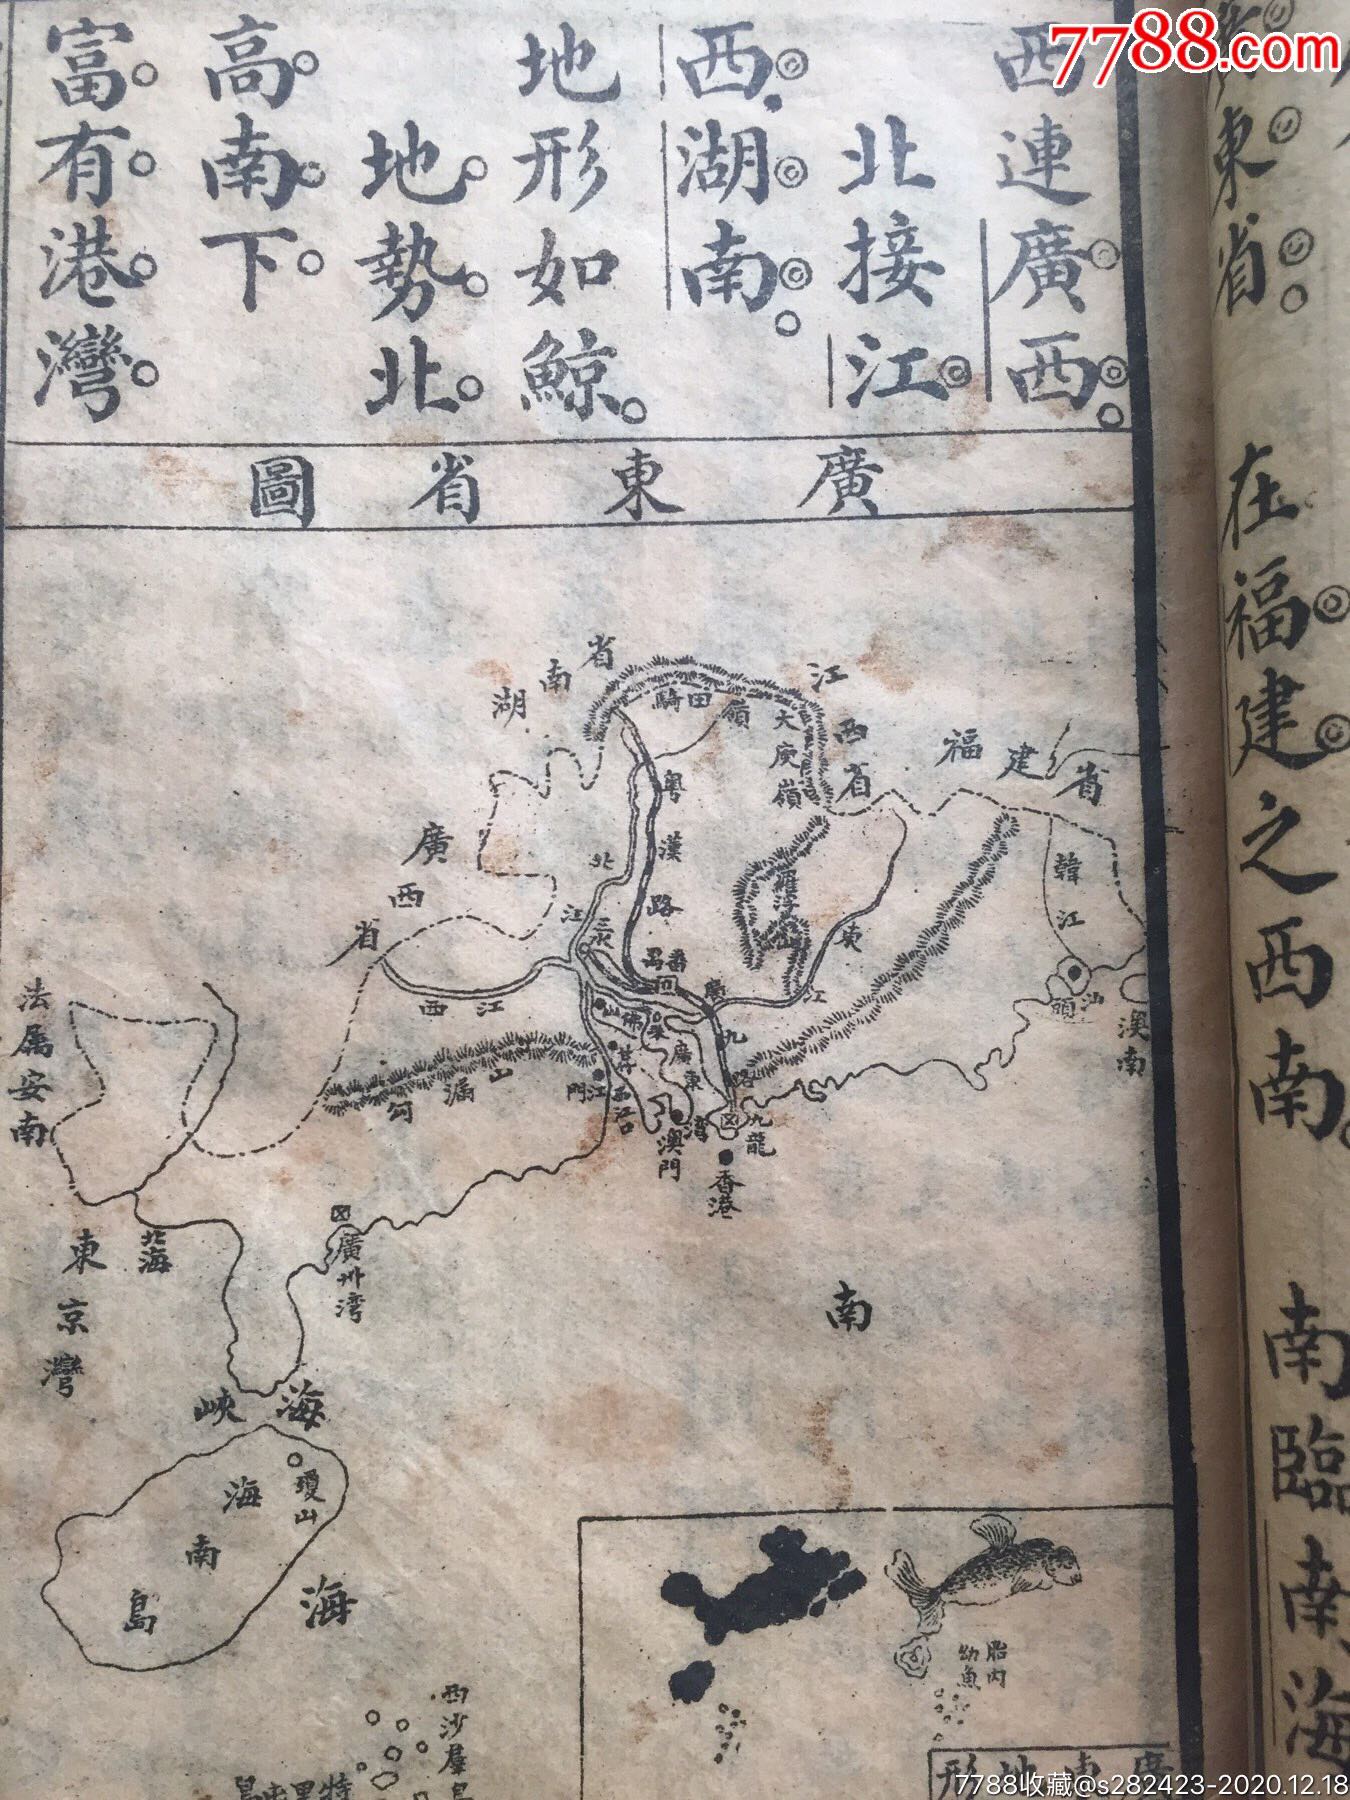 7788.com
東省。
在福建之西南。
南臨南海
西連廣西。
北接江
西。湖南。
地形如鯨。
地勢北
高南下。
富有港灣。
廣東省圖
湖南省
江西省
福建省
廣西省
騎田嶺
大庾嶺
粵漢路
北江
三水
西江
韓江
汕頭
南澳
廣九路
佛山
江門
廣東灣
澳門
九龍
香港
法属安南
東京灣
北海
廣州湾
海峽
瓊山
海南島
南海
西沙羣島
胎内幼魚
廣東地形
7788收藏@s282423-2020.12.18